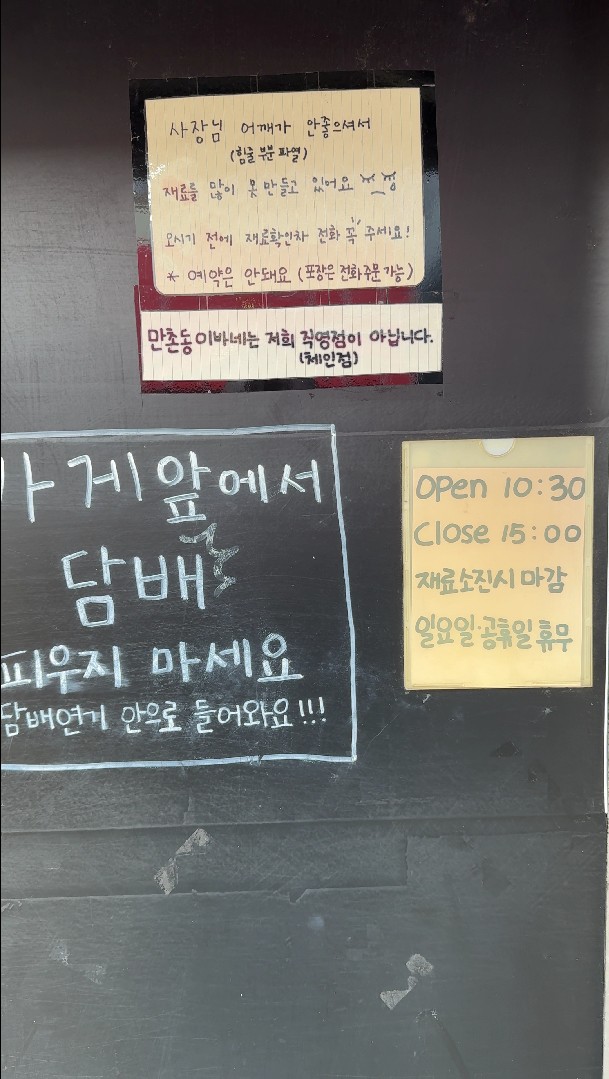 사장님 어깨가 안좋으셔서
(힘줄 부분 파열)
재료를 많이 못 만들고 있어요
오시기 전에 재료확인차 전화 꼭 주세요!
* 예약은 안돼요 (포장은 전화주문 가능)
만촌동 이바네는 저희 직영점이 아닙니다.
(체인점)
가게앞에서
담배
피우지 마세요
담배연기 안으로 들어와요!!!
Open 10:30
Close 15:00
재료소진시 마감
일요일·공휴일 휴무